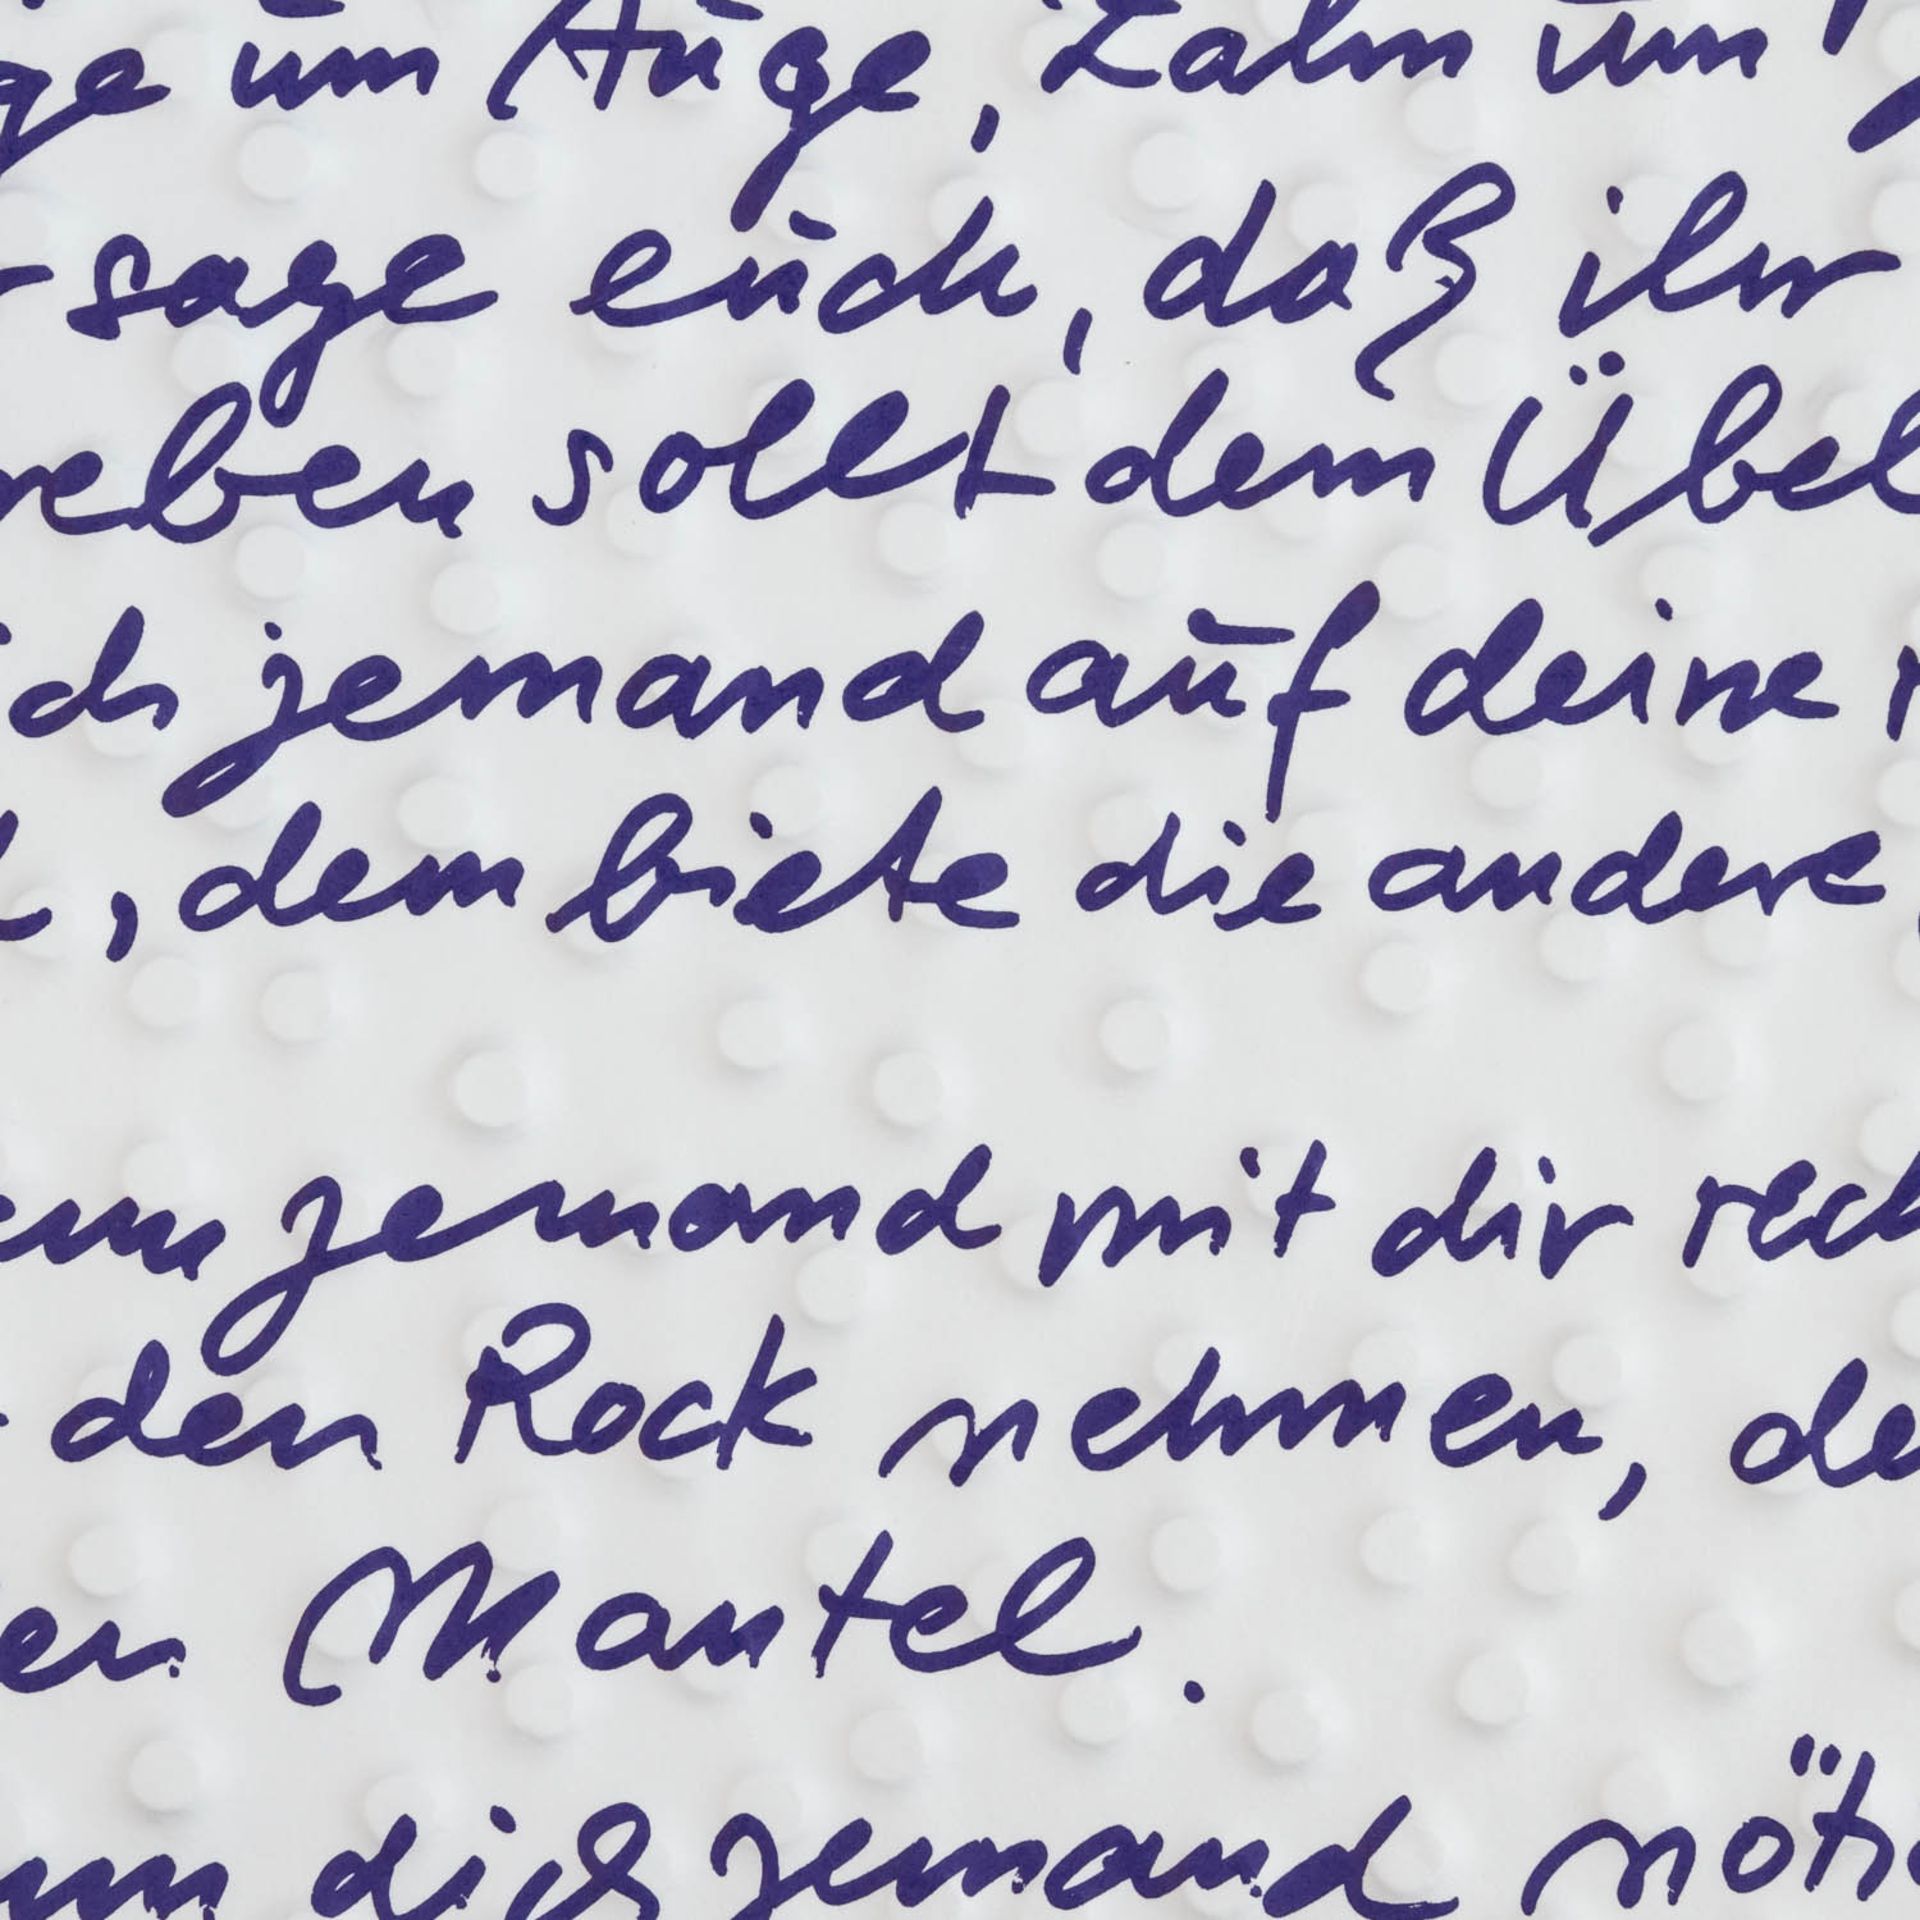 ge um Auge, Zahn um
sage euch, daß ihr
reben sollt dem Übel
ich jemand auf deine r
, dem biete die andere
enn jemand mit dir rech
den Rock nehmen, de
en Mantel.
nn dich jemand nöti